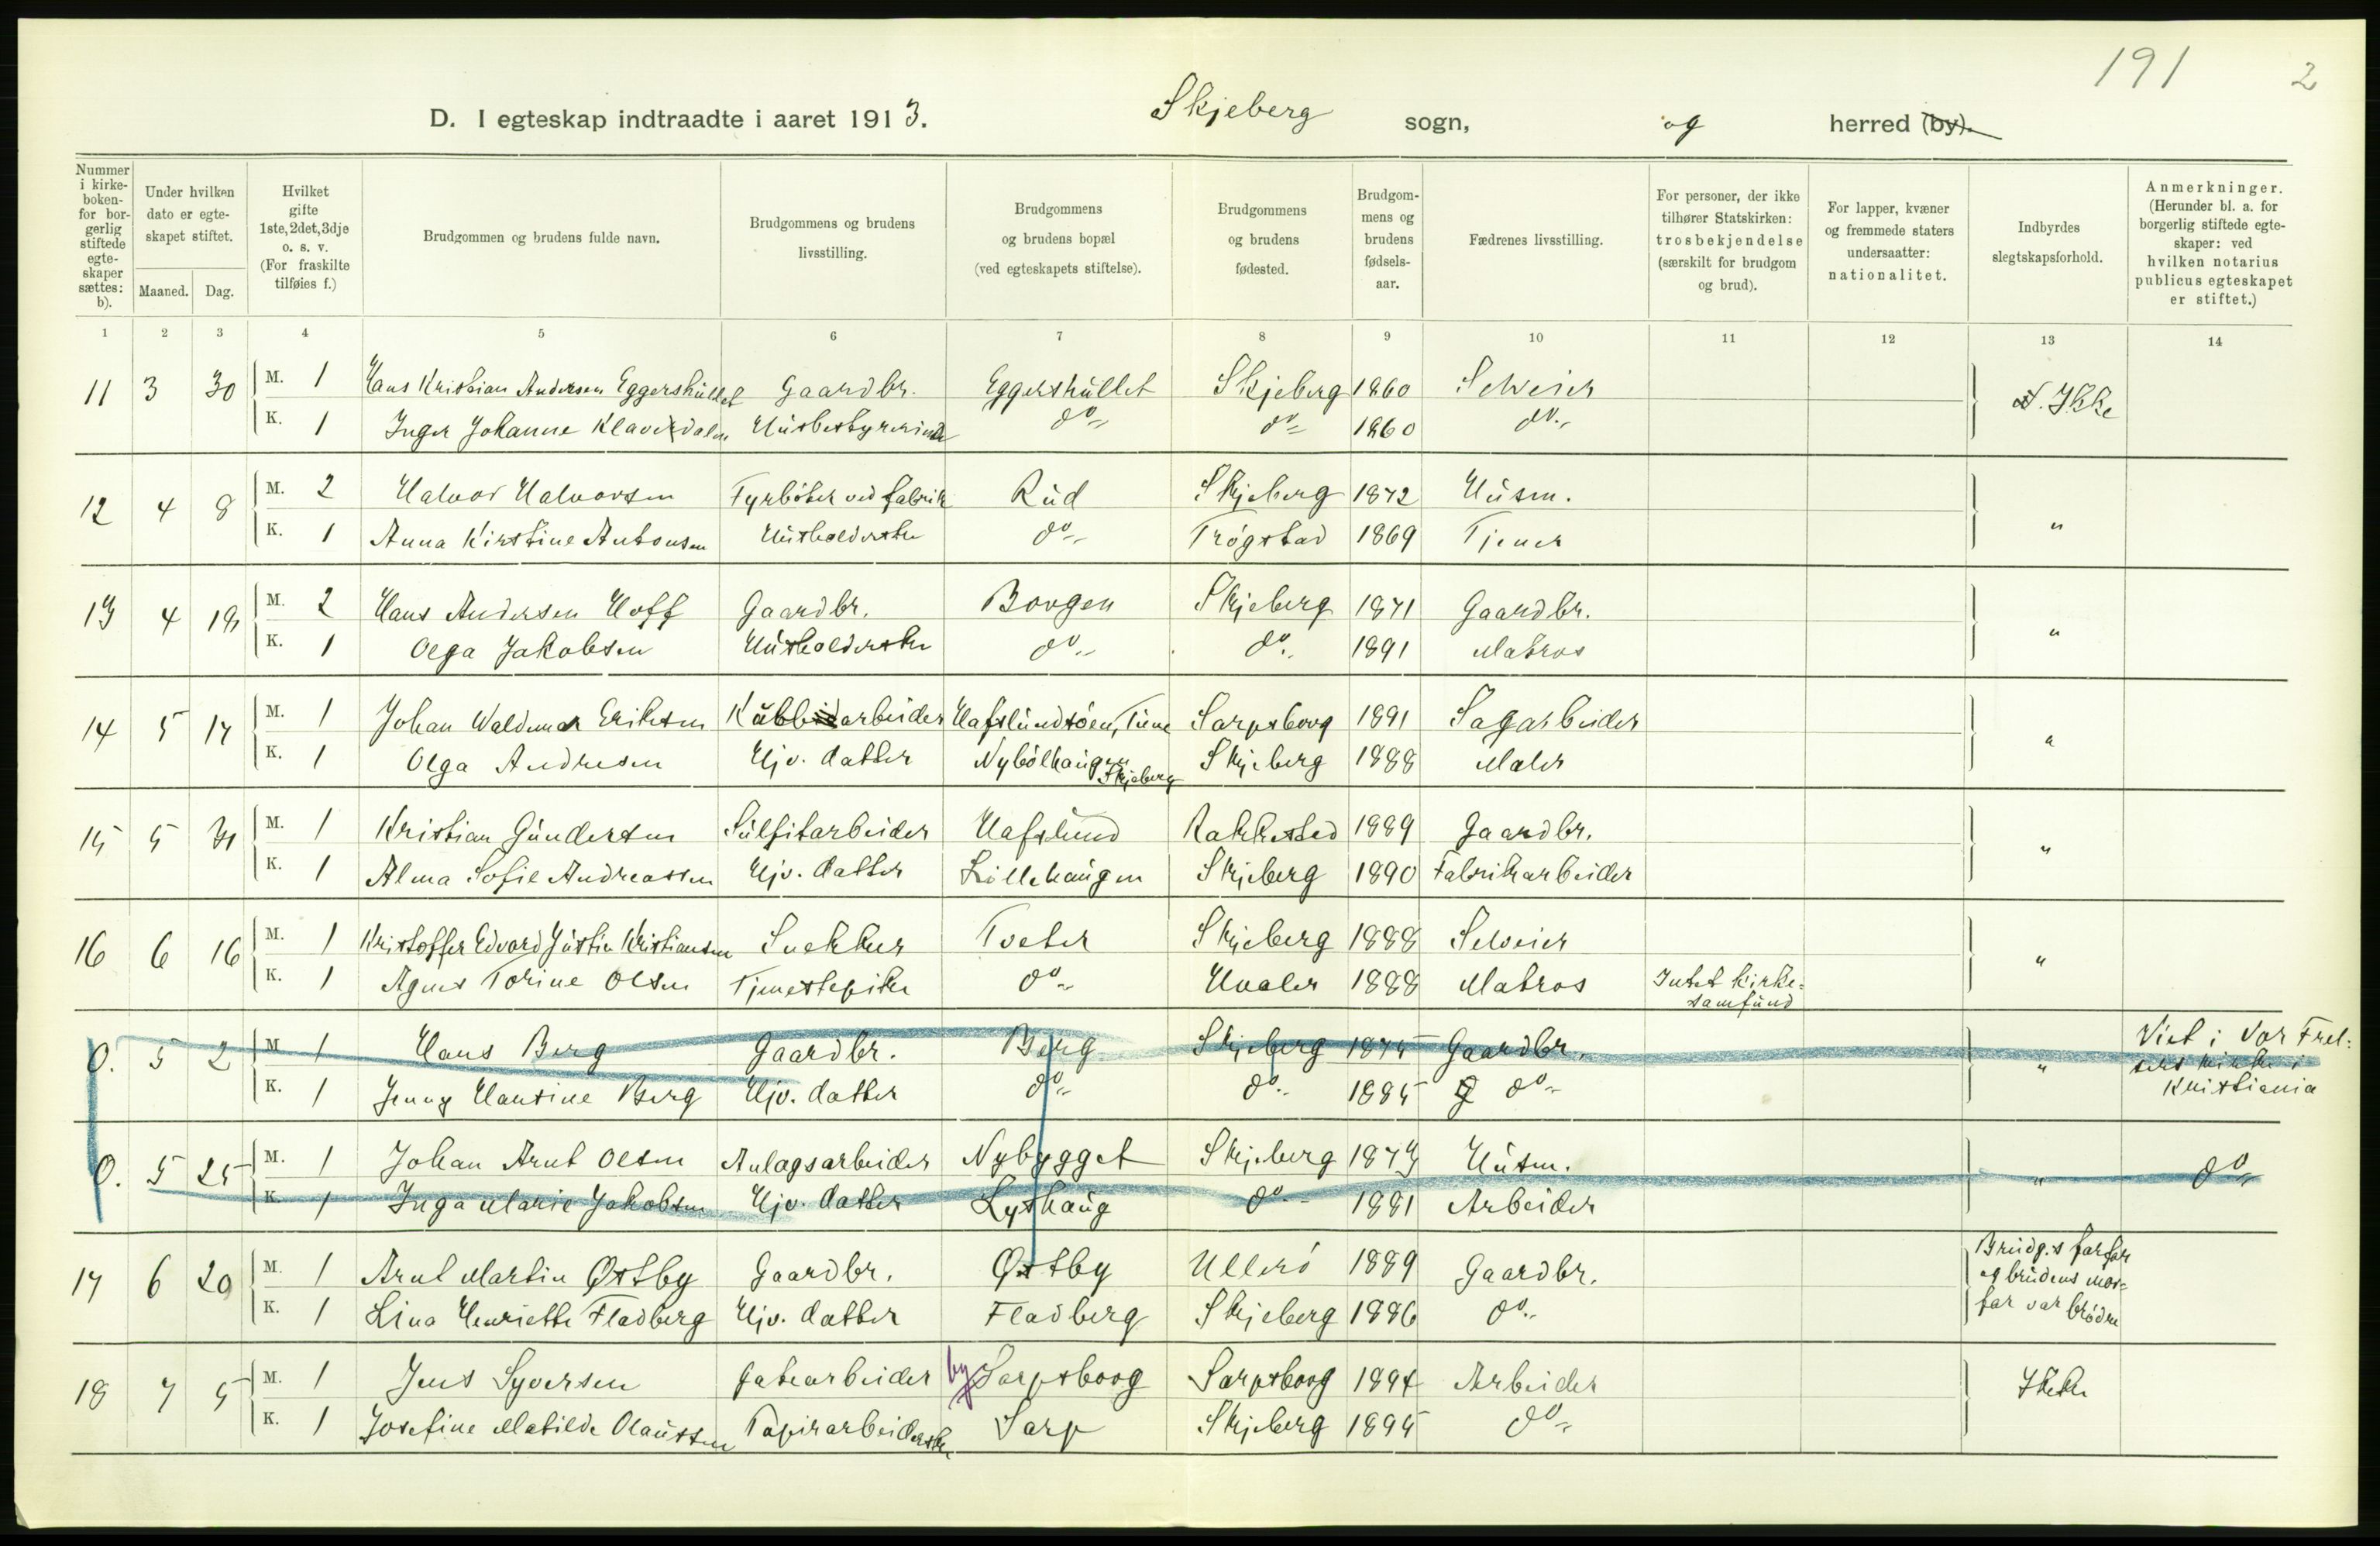 191 2
D. I egteskap indtraadte i aaret 1913. Skjeberg sogn, og herred (by).
Nummer i kirke-boken- for bor-gerlig stiftede egte-skaper sættes: b).
Under hvilken dato er egte-skapet stiftet.
Maaned. Dag.
Hvilket gifte 1ste, 2det, 3dje o. s. v. (For fraskilte tilføies f.)
Brudgommen og brudens fulde navn.
Brudgommens og brudens livsstilling.
Brudgommens og brudens bopæl (ved egteskapets stiftelse).
Brudgommens og brudens fødested.
Brudgom-mens og brudens fødsels-aar.
Fædrenes livsstilling.
For personer, der ikke tilhører Statskirken: trosbekjendelse (særskilt for brudgom og brud).
For lapper, kvæner og fremmede staters undersaatter: nationalitet.
Indbyrdes slegtskapsforhold.
Anmerkninger. (Herunder bl. a. for borgerlig stiftede egte-skaper: ved hvilken notarius publicus egteskapet er stiftet.)
1 2 3 4 5 6 7 8 9 10 11 12 13 14
11 3 30 M. 1 Hans Kristian Andersen Eggershullet Gaardbr. Eggershullet Skjeberg 1860 Selveier Ikke
K. 1 Inger Johanne Klaverdalen Husbestyrerinde do do 1860 do
12 4 8 M. 2 Halvor Halvorsen Fyrbøter ved fabrik Rud Skjeberg 1872 Husm. "
K. 1 Anna Kirstine Antonsen Husholderske do Trøgstad 1869 Tjener
13 4 19 M. 2 Hans Andersen Hoff Gaardbr. Borgen Skjeberg 1871 Gaardbr. "
K. 1 Olga Jakobsen Husholderske do do 1891 Matros
14 5 17 M. 1 Johan Waldemar Eriksen Kubbarbeider Hafslundsøen, Tune Sarpsborg 1891 Sagarbeider "
K. 1 Olga Andresen Hjv. datter Nybølhaugen Skjeberg Skjeberg 1888 Maler
15 5 31 M. 1 Kristian Gundersen Sulfitarbeider Hafslund Rakkestad 1889 Gaardbr. "
K. 1 Alma Sofie Andreassen Hjv. datter Lillehaugen Skjeberg 1890 Fabrikarbeider
16 6 16 M. 1 Kristoffer Edvard Justin Kristiansen Snekker Tveter Skjeberg 1888 Selveier "
K. 1 Agnes Torine Olsen Tjenestepike do Hvaler 1888 Matros Intet kirke-
samfund
0. 5 2 M. 1 Hans Berg Gaardbr. Berg Skjeberg 1875 Gaardbr. " Viet i Vor Frel-
sers kirke i
K. 1 Jenny Hansine Berg Hjv. datter do do 1885 do Kristiania
0. 5 25 M. 1 Johan Arnt Olsen Anlagsarbeider Nybygget Skjeberg 1879 Husm. " do
K. 1 Inga Marie Jakobsen Hjv. datter Lyshaug do 1881 Arbeider
17 6 20 M. 1 Arnt Martin Østby Gaardbr. Østby Ullerø 1889 Gaardbr. Brudg.s farfar
og brudens mor-
K. 1 Lina Henriette Fladberg Hjv. datter Fladberg Skjeberg 1886 do far var brødre
18 7 5 M. 1 Jens Syversen Gatearbeider by Sarpsborg Sarpsborg 1894 Arbeider Ikke
K. 1 Josefine Matilde Olaussen Papirarbeiderske Sarp Skjeberg 1895 do